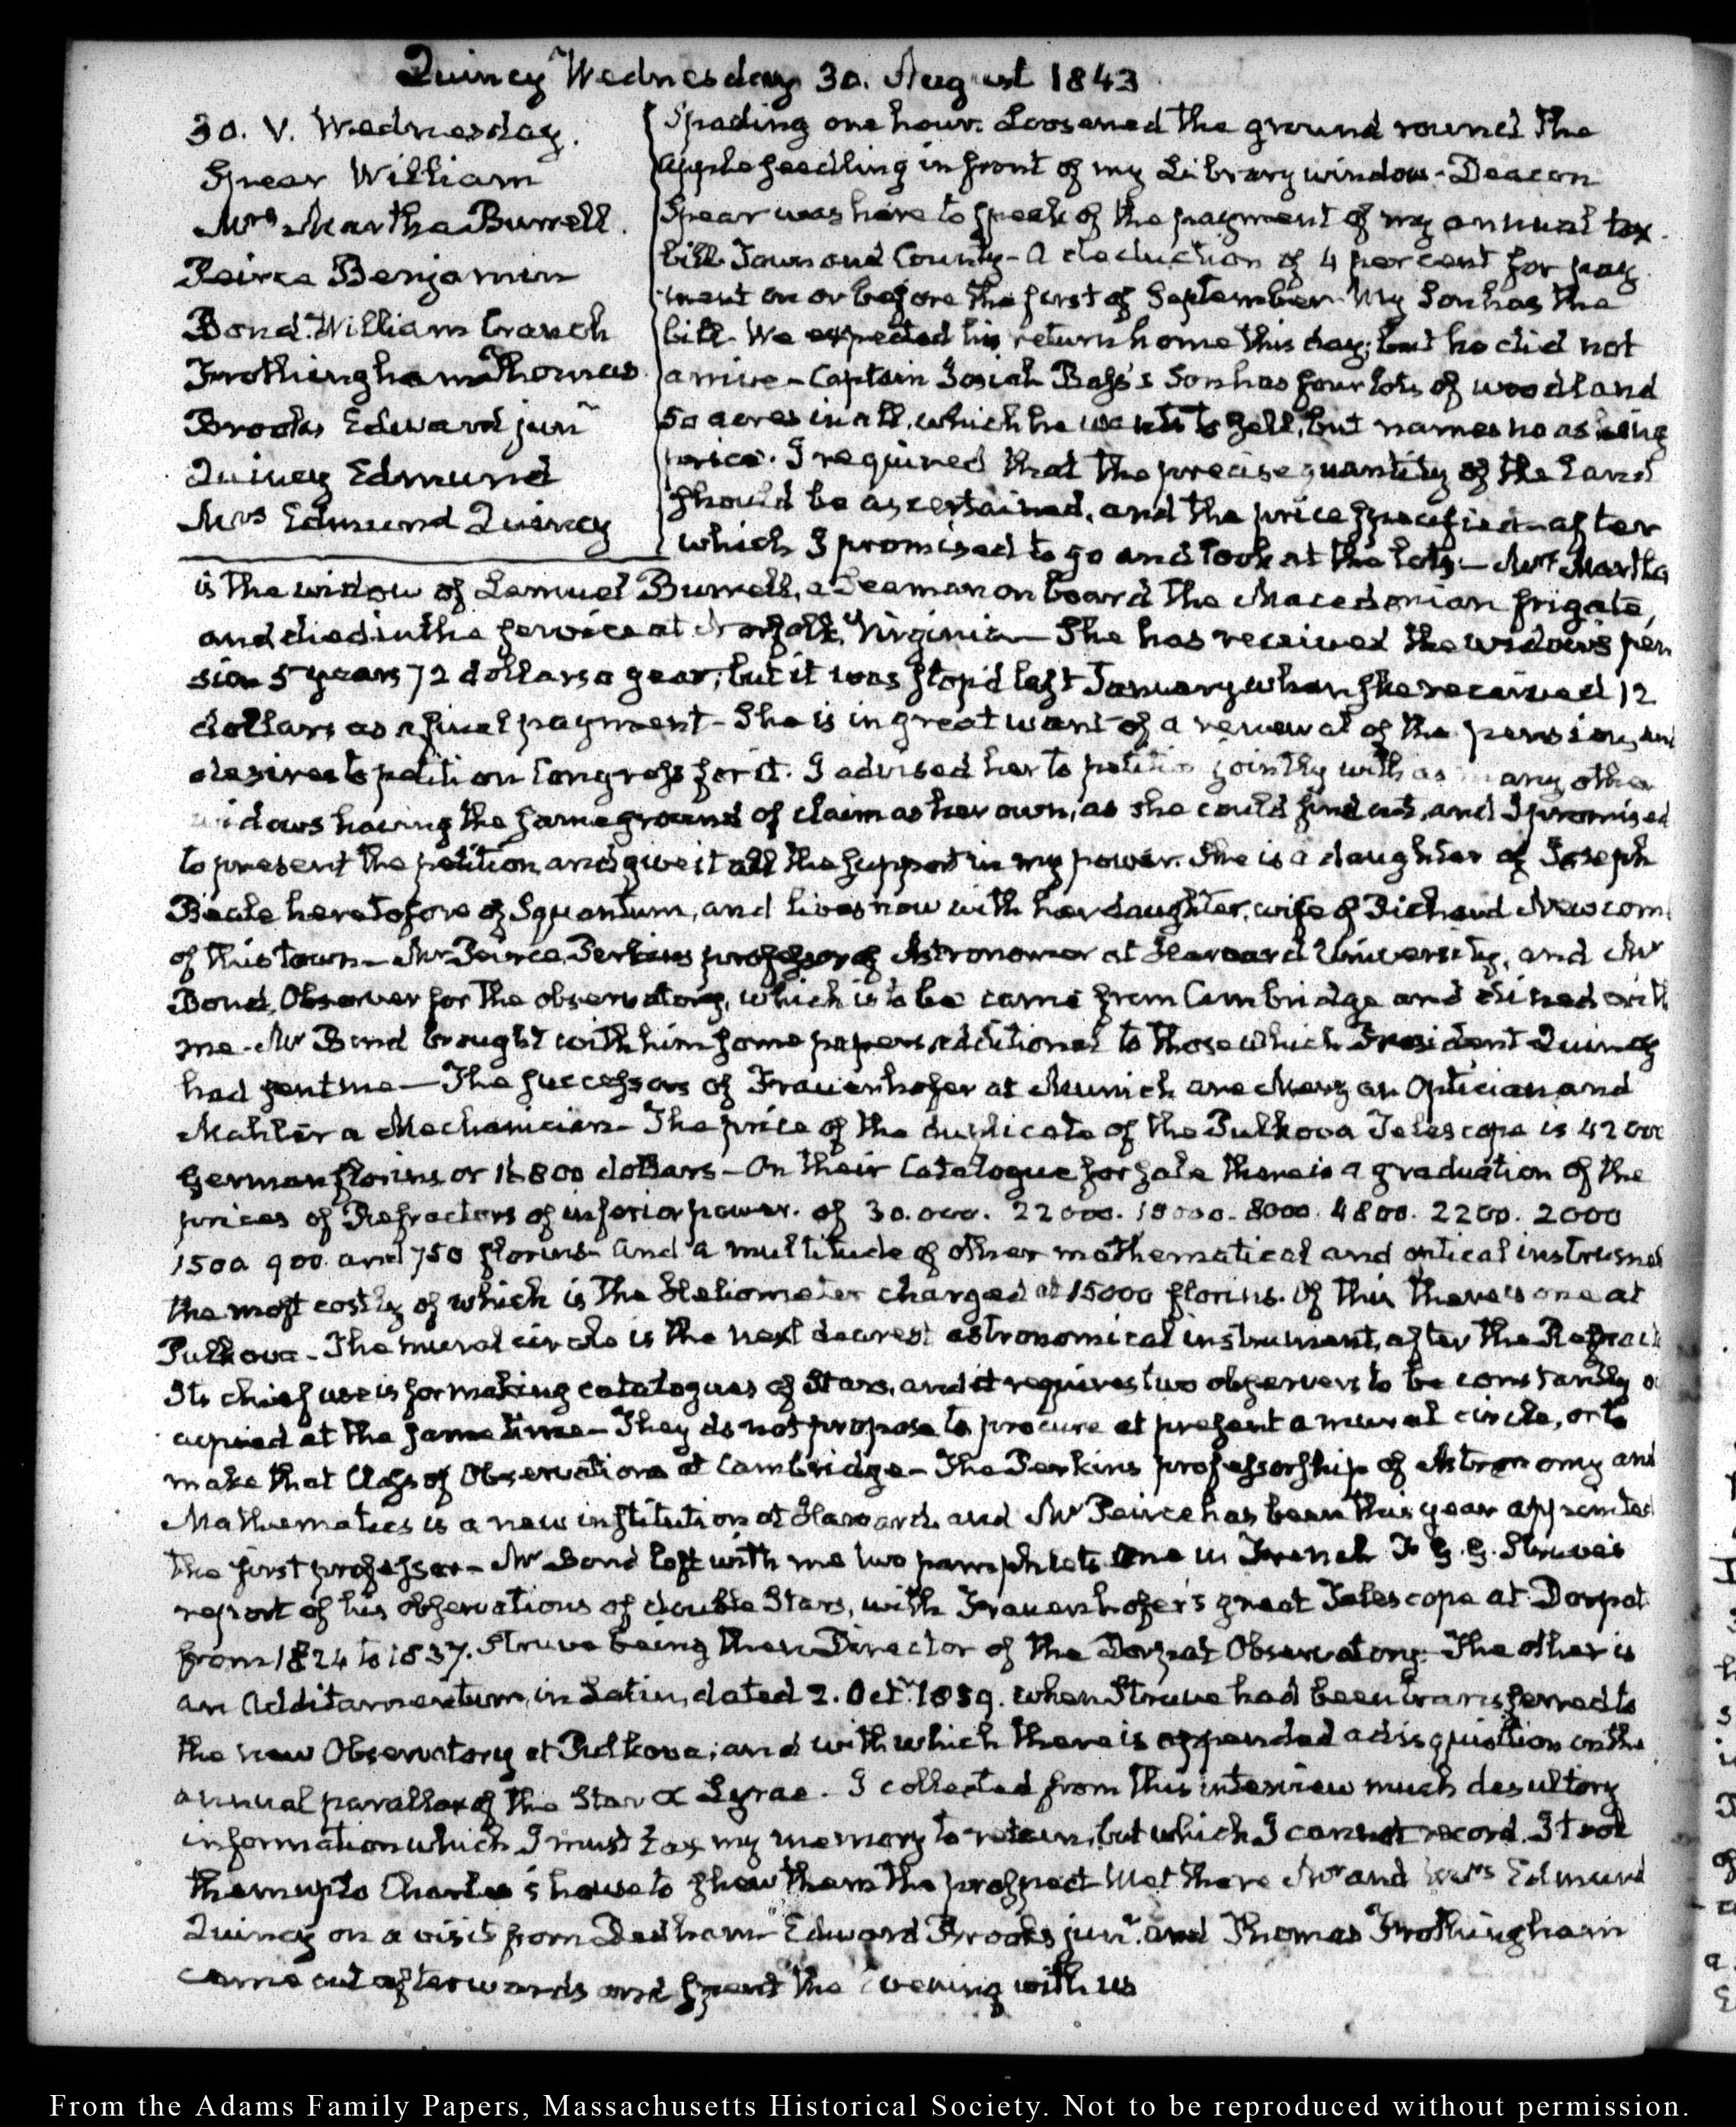 Quincy Wednesday 30. August 1843
30. V. Wednesday.
Spear William
Mrs Martha Burrell.
Peirce Benjamin
Bond. William Cranch
Frothingham Thomas
Brooks Edward junr
Quincy Edmund
Mrs Edmund Quincy
Spading one hour. Loosened the ground round the
apple seedling in front of my Library window - Deacon
Spear was here to speak of the payment of my annual tax
bill Town and County - A deduction of 4 per cent for pay
ment on or before the first of September. My Son has the
bill. We expected his return home this day; but he did not
arrive - Captain Josiah Bass's Son has four lots of woodland
50 acres in all, which he wants to sell, but names no asking
price. I required that the precise quantity of the Land
should be ascertained, and the price specified - after
which I promised to go and look at the lots - Mrs Martha
is the widow of Lemuel Burrell, a Seaman on board the Macedonian frigate,
and died in the service at Norfolk, Virginia - She has received the widow's pen
sion 5 years 72 dollars a year; but it was stop'd last January when she received 12
dollars as a final payment - She is in great want of a renewal of the pension, and
desires to petition Congress for it. I advised her to petition jointly with as many other
widows having the same ground of claim as her own, as she could find out, and I promised
to present the petition and give it all the support in my power. She is a daughter of Joseph
Beale heretofore of Squantum, and lives now with her daughter, wife of Richard Newcomb
of this town - Mr Peirce, Perkins professor of Astronomer at Harvard University, and Mr
Bond, Observer for the observatory, which is to be came from Cambridge and dined with
me - Mr Bond brought with him some papers additional to those which President Quincy
had sent me - The successors of Frauenhofer at Munich are Merz an Optician and
Mahler a Mechanician - The price of the duplicate of the Pulkova Telescope is 42000
German florins or 16800 dollars - On their Catalogue for sale there is a graduation of the
prices of Refractors of inferior power. of 30.000. 22000. 18000. 8000. 4800. 2200. 2000
1500 900 and 750 florins - and a multitude of other mathematical and optical instrumen
the most costly of which is the Heliometer charged at 15000 florins. Of this there is one at
Pulkova - The mural circle is the next dearest astronomical instrument, after the Refract
Its chief use is for making catalogues of Stars, and it requires two observers to be constantly oc
cupied at the same time - They do not propose to procure at present a mural circle, or to
make that Class of Observations at Cambridge - The Perkins professorship of Astronomy and
Mathematics is a new institution at Harvard, and Mr Peirce has been this year appointed
the first professor - Mr Bond left with me two pamphlets One in French F. G. G. Struve's
report of his observations of double Stars, with Frauenhofer's great Telescope at Dorpat
from 1824 to 1837. Struve being then Director of the Dorpat Observatory - The other is
an Additamentum, in Latin, dated 2. Octr. 1839. when Struve had been transferred to
the new Observatory at Pulkova; and with which there is appended a disquisition on the
annual parallax of the Star α Lyrae. I collected from this interview much desultory
information which I must tax my memory to retain, but which I cannot record. I took
them up to Charles's house to shew them the prospect Met there Mr and Mrs Edmund
Quincy on a visit from Dedham - Edward Brooks junr. and Thomas Frothingham
came out afterwards and spent the evening with us
From the Adams Family Papers, Massachusetts Historical Society. Not to be reproduced without permission.